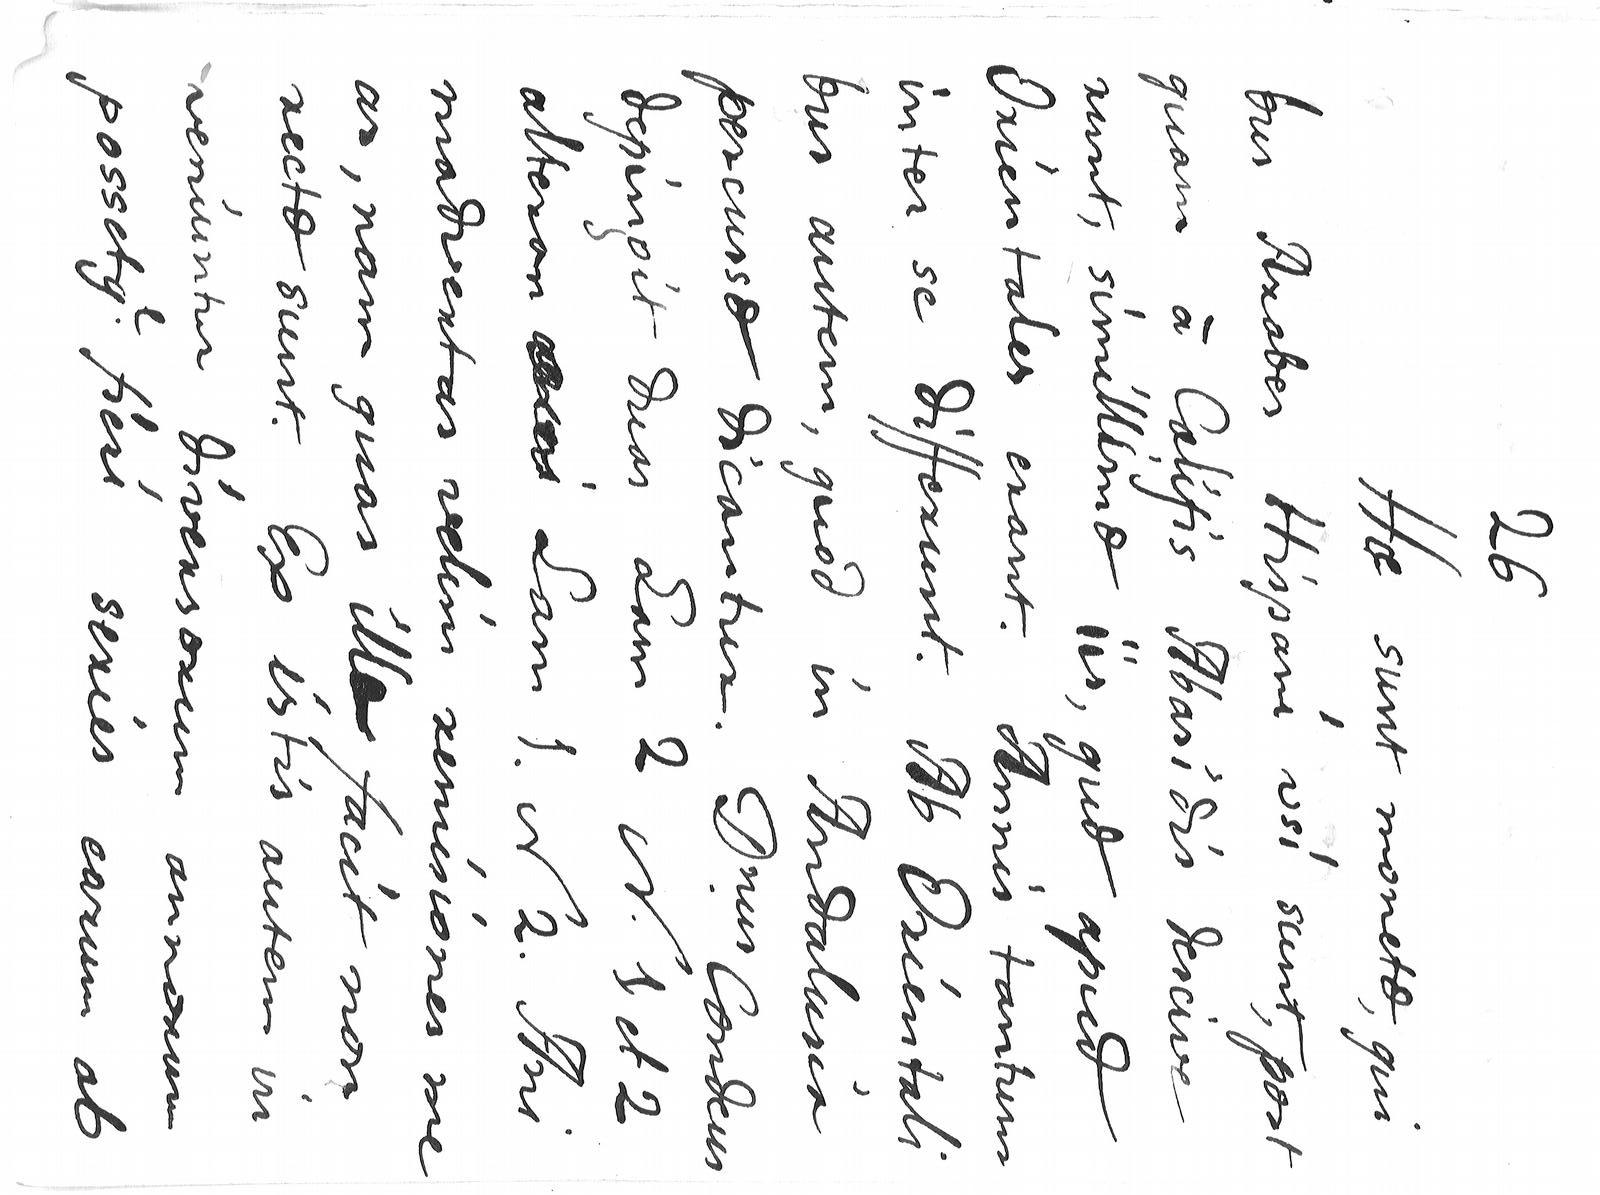 26
Hæ sunt monetæ, qui
bus Arabes Hispani vsi sunt, post
quam à Califis Abasidis descive
runt, simillimæ iis, quæ apud
Orientales erant. Annis tantum
inter se differunt. Ab Orientali
bus autem, quod in Andalusia
percussæ dicantur. Dnus Condeus
depingit duas Lam 2 N. 1 et 2
alteram Lam 1. N 2. Ani
madvertas velim remisiones me
as, nam quas ille facit non
rectæ sunt. Ex istis autem in
veniuntur diversorum annorum
possetq. fieri series earum ab